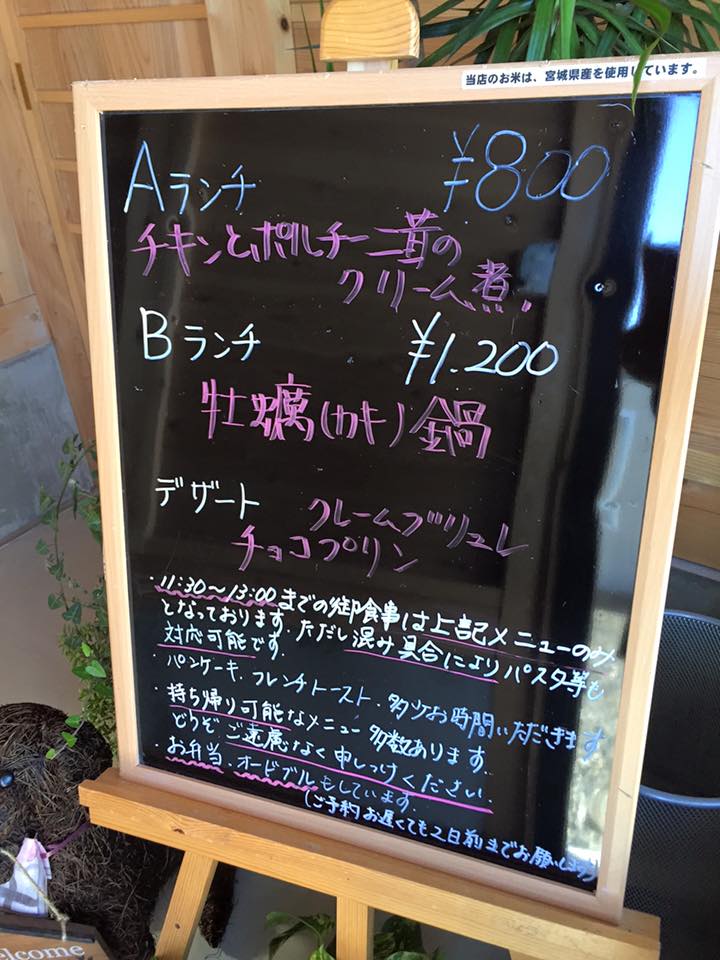 当店のお米は、宮城県産を使用しています。
Aランチ ¥800
チキンとポルチーニ茸の
クリーム煮。
Bランチ ¥1.200
牡蠣(カキ)鍋
デザート クレームブリュレ
チョコプリン
・11:30〜13:00までの御食事は上記メニューのみ
となっております。ただし混み具合によりパスタ等も
対応可能です。
・パンケーキ、フレンチトースト、多少お時間いただきます
・持ち帰り可能なメニュー多数あります。
どうぞご遠慮なく申しつけください。
・お弁当、オードブルもしています。
(ご予約お遅くても2日前までお願いします)
elcome